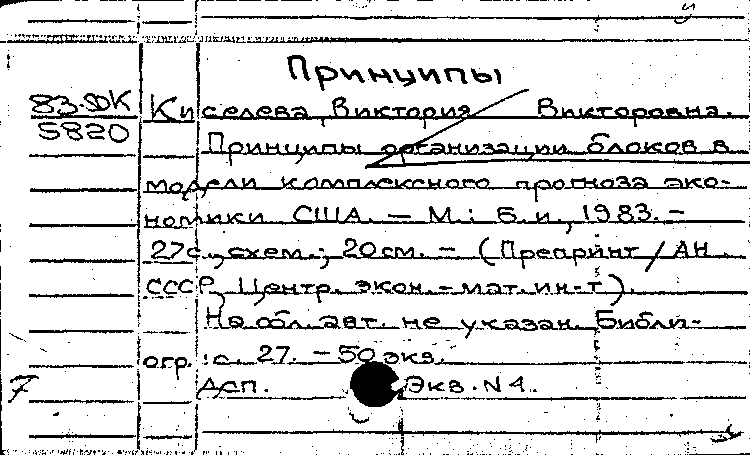 Принципы
83-5DK Киселева, Виктория Викторовна.
5820
Принципы организации блоков в
модели комплексного прогноза эко-
номики США. — М.: Б.и., 1983. —
27с., схем.; 20см. — (Препринт / АН
СССР, Центр. экон.-мат. ин-т).
На обл. авт. не указан. Библи-
огр.: с. 27. — 50 экз.
Асп. Экз. N 4.
7